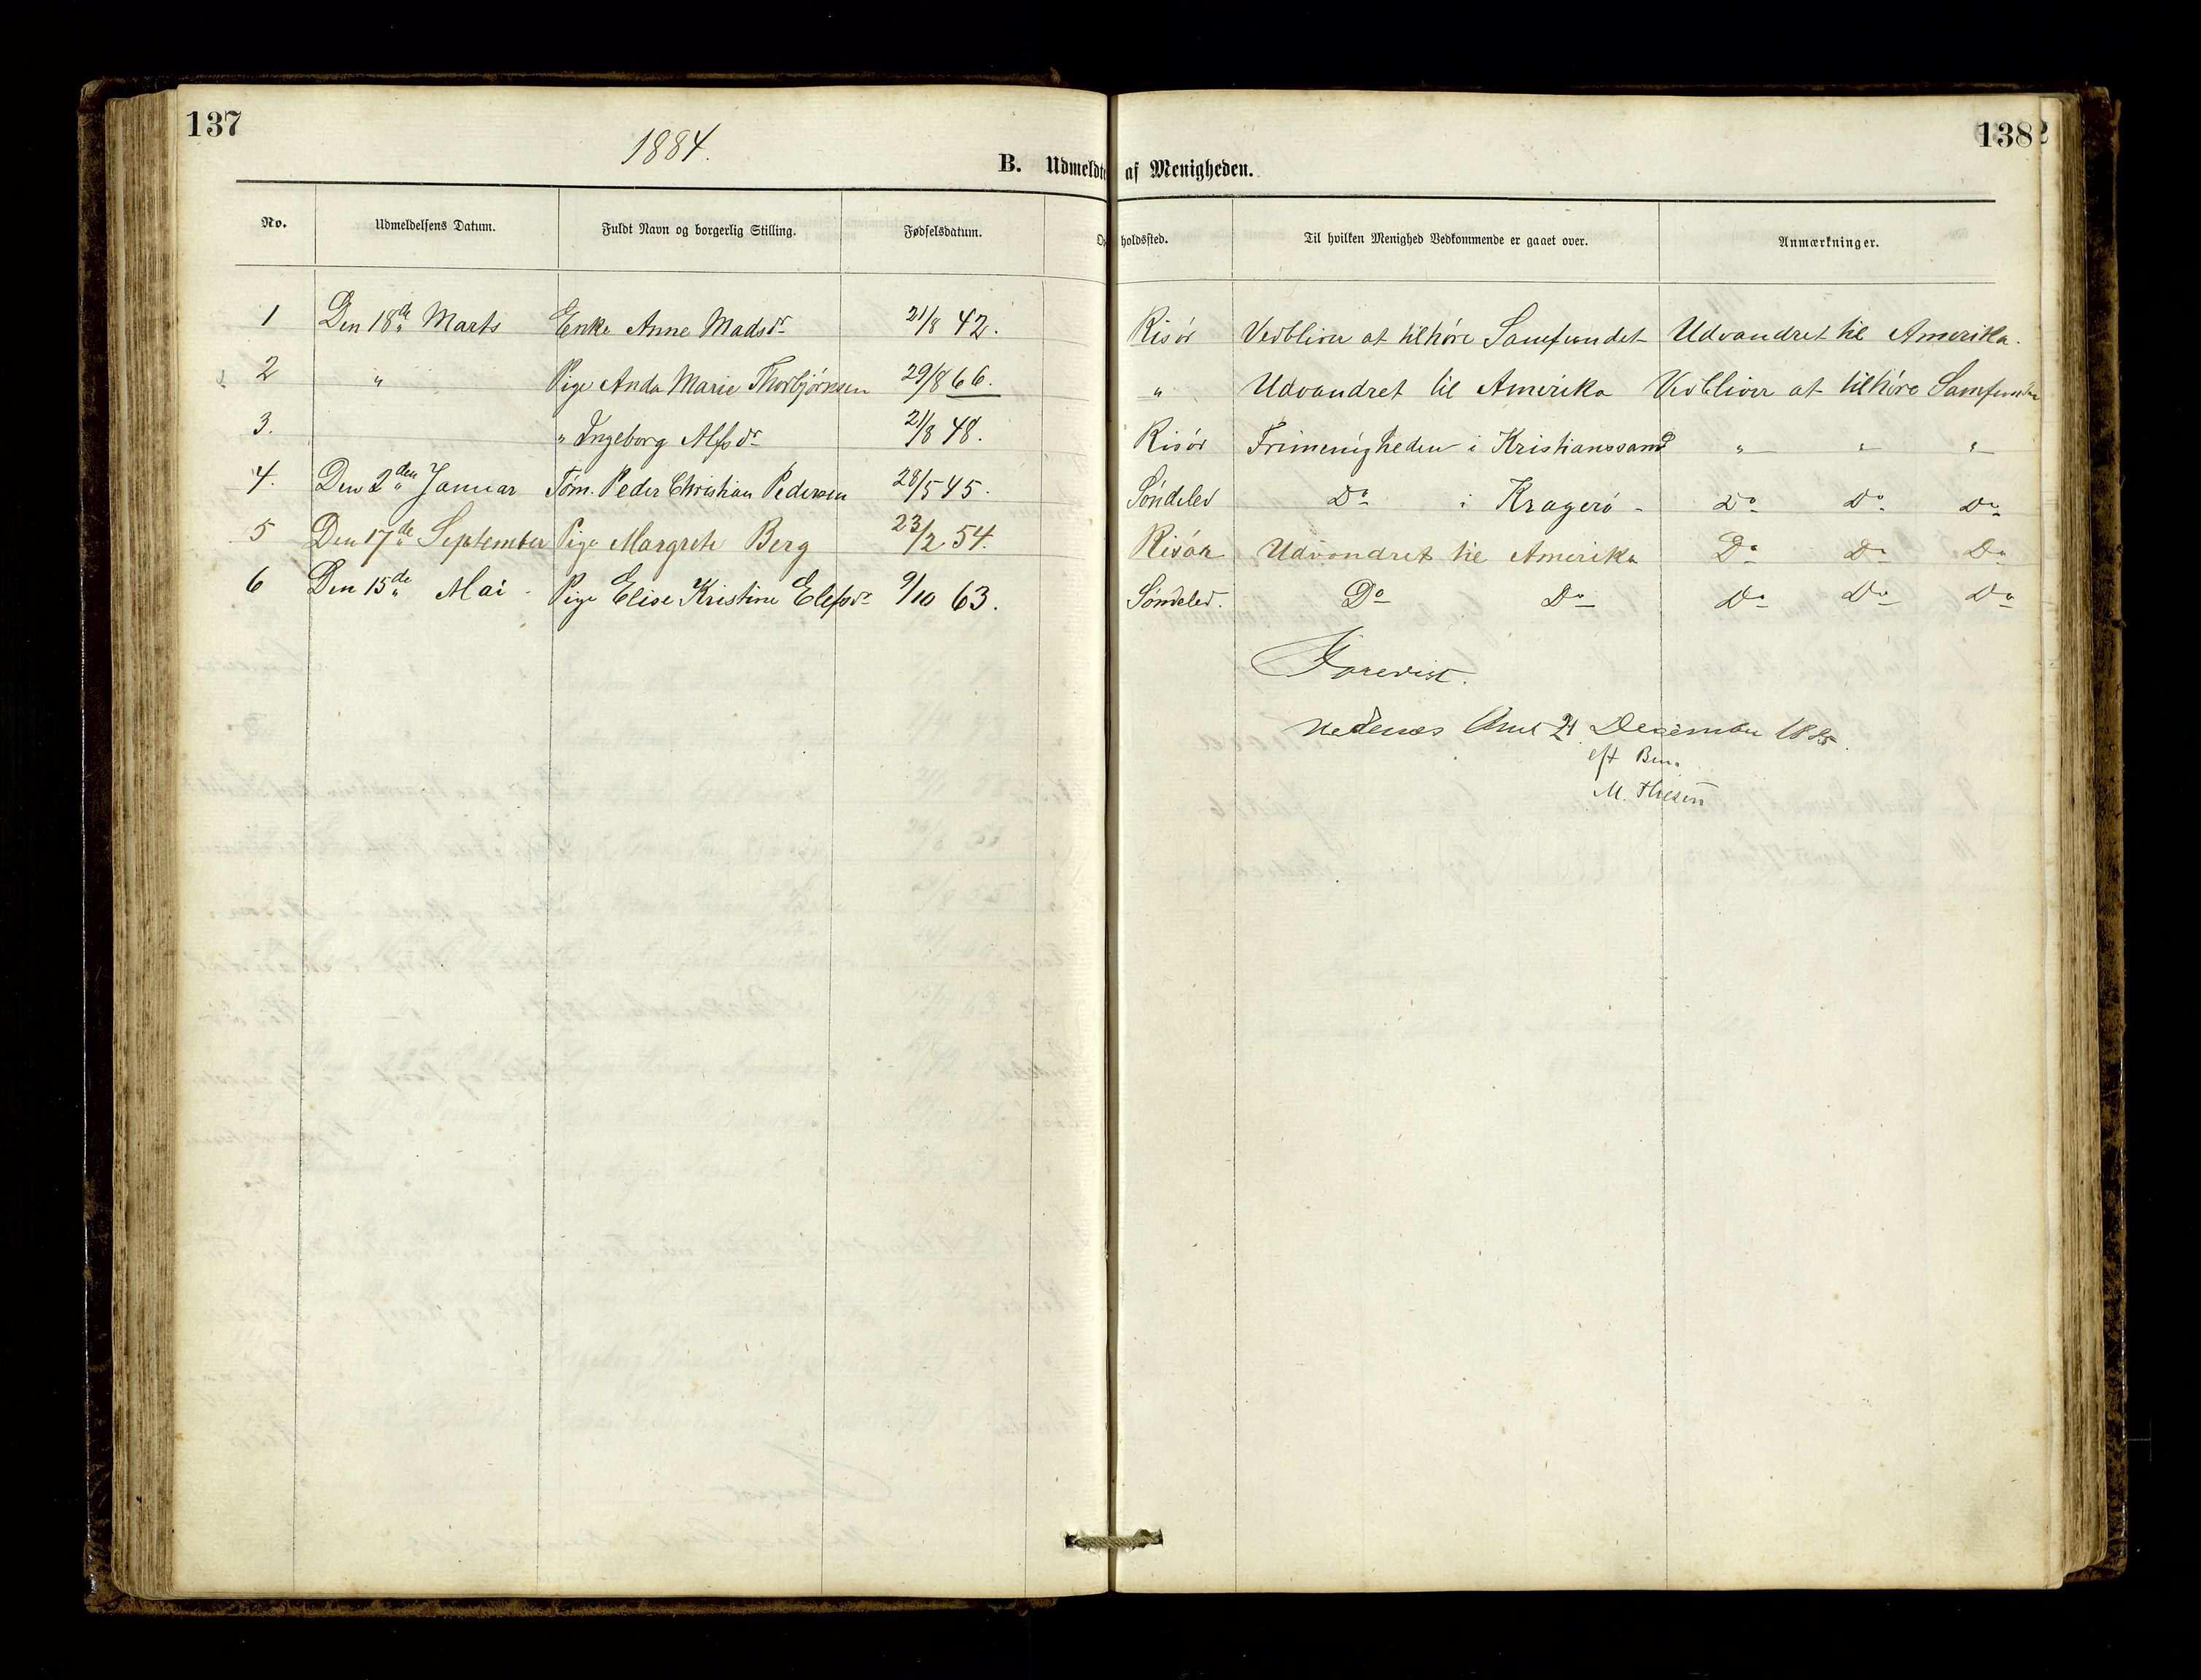 137
1884.
138
B. Udmeldte af Menigheden.
No. Udmeldelsens Datum. Fuldt Navn og borgerlig Stilling. Fødselsdatum. Opholdssted. Til hvilken Menighed Vedkommende er gaaet over. Anmærkninger.
1 Den 18de Marts Enke Anne Madsdr 21/8 42. Risør Vedbliver at tilhøre Samfundet Udvandret til Amerika.
2 " Pige Anda Marie Thorbjørnsen 29/8 66. " Udvandret til Amerika Vedbliver at tilhøre Samfundet
3. " Ingeborg Alfsdr 21/8 48. Risør Frimenigheden i Kristianssand " " "
4. Den 2den Januar Tøm. Peder Christian Pedersen 28/5 45. Søndeled Do i Kragerø - Do Do Do
5 Den 17de September Pige Margrete Berg 23/2 54. Risør Udvandret til Amerika Do Do Do
6 Den 15de Mai. Pige Elise Kristine Elefsdr 9/10 63. Søndeled. Do Do Do Do Do
Forevist.
Nedenæs Amt 21 December 1885.
eft Bem.